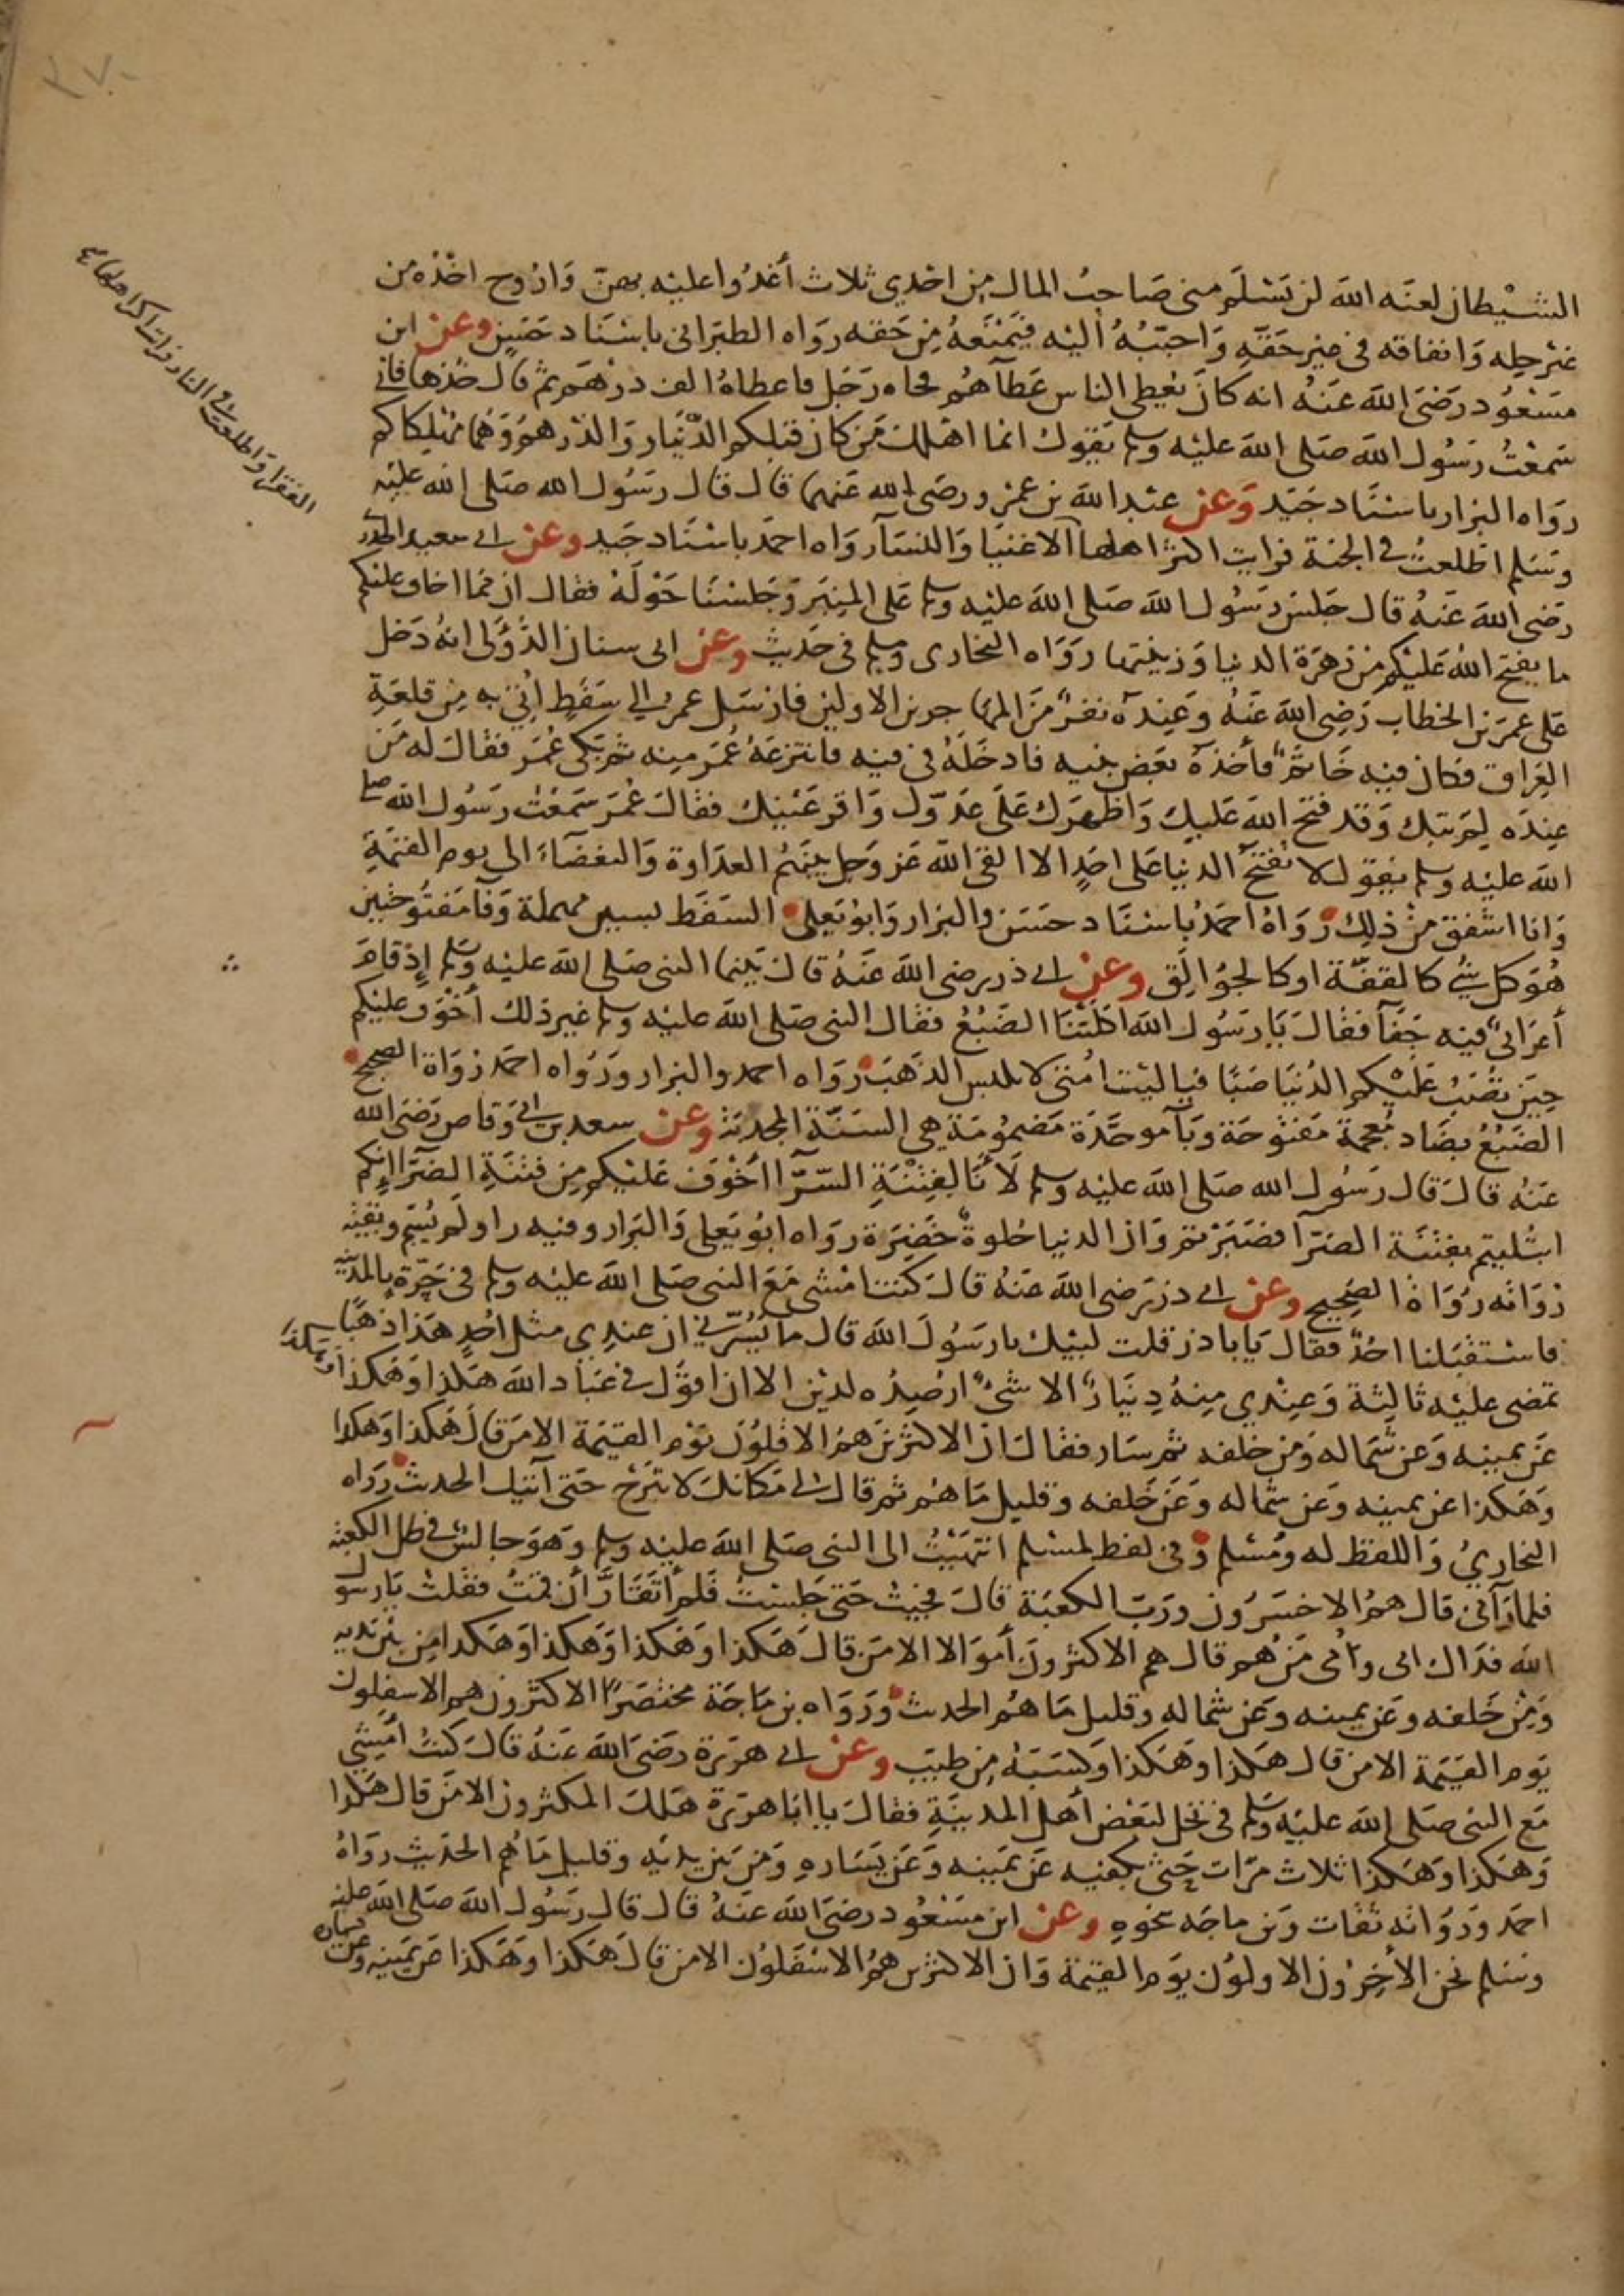 ٣٧٠
الشيطان لعنه الله لن يسلم مني صاحب المال من احدى ثلاث أغدوا عليه بهن وَاروح اخذه من
غير حله وَانفاقه في غير حقه وَاحببه اليه فيمنعه من حقه رواه الطبراني باسناد حسن وعن ابن
مسعود رضى الله عنه انه كان يعطى الناس عطآهم فجاه رجل فاعطاه الف درهم ثم قال خذها فاني
سمعت رسول الله صلى الله عليه وسلم يقول انما اهلك من كان قبلكم الدينار والدرهم وهما مهلكاكم
رواه البزار باسناد جيد وعن عبد الله بن عمرو رضى الله عنهما قال قال رسول الله صلى الله عليه
وسلم اطلعت في الجنة فرايت اكثر اهلها الاغنيا والنسآ رواه احمد باسناد جيد وعن ابي سعيد الخدر
رضى الله عنه قال جلس رسول الله صلى الله عليه وسلم على المنبر وجلسنا حوله فقال ان مما اخاف عليكم
ما يفتح الله عليكم من زهرة الدنيا وزينتها رواه البخارى ومسلم في حديث وعن ابى سنان الدؤلى انه دخل
على عمر بن الخطاب رضى الله عنه وعنده نفر من المهاجرين الاولين فارسل عمر الى سفط أتي به من قلعة
العراق فكان فيه خاتم فأخذه بعض بنيه فادخله في فيه فانتزعه عمر منه ثم بكى عمر فقال له من
عنده لم تبك وقد فتح الله عليك واظهرك على عدوك واقر عينيك فقال عمر سمعت رسول الله صلى
الله عليه وسلم يقول لا تفتح الدنيا على احد الا القى الله عز وجل بينهم العداوة والبغضاء الى يوم القيمة
وانا اشفق من ذلك رواه احمد باسناد حسن والبزار وابو يعلى السفط بسين مهملة وفآ مفتوحتين
هو كل شي كالقفة او كالجوالق وعن ابي ذر رضى الله عنه قال بينما النبى صلى الله عليه وسلم إذ قام
أعرابي فيه جفآ فقال يا رسول الله اكلتنا الضبع فقال النبى صلى الله عليه وسلم غير ذلك أخوف عليكم
حين تصب عليكم الدنيا صبا فياليت امتى لا تلبس الذهب رواه احمد والبزار ورواه احمد رواة الصحيح
الضبع بضاد معجمة مفتوحة وبآ موحدة مضمومة هي السنة المجدبة وعن سعد بن ابي وقاص رضى الله
عنه قال قال رسول الله صلى الله عليه وسلم لأنا لفتنة السرآ أخوف عليكم من فتنة الضرآ إنكم
ابتليتم بفتنة الضرآ فصبرتم وان الدنيا حلوة خضرة رواه ابو يعلى والبزار وفيه راو لم يسم وبقية
رواته رواة الصحيح وعن ابي ذر رضى الله عنه قال كنت امشى مع النبى صلى الله عليه وسلم في حرة بالمدينة
فاستقبلنا احد فقال يا باذر قلت لبيك يا رسول الله قال ما يسرني ان عندي مثل احد هذا ذهبا
تمضى عليه ثالثة وعندي منه دينار الا شئ ارصده لدين الا ان اقول في عباد الله هكذا وهكذا وهكذا
عن يمينه وعن شماله ومن خلفه ثم سار فقال ان الاكثرين هم الاقلون يوم القيمة الا من قال هكذا وهكذا
وهكذا عن يمينه وعن شماله وعن خلفه وقليل ما هم ثم قال لي مكانك لا تبرح حتى آتيك الحديث رواه
البخاري واللفظ له ومسلم وفي لفظ لمسلم انتهيت الى النبى صلى الله عليه وسلم وهو جالس في ظل الكعبة
فلما رآني قال هم الاخسرون ورب الكعبة قال فجيت حتى جلست فلم أتقار أن قمت فقلت يا رسول
الله فداك ابى وأمى من هم قال هم الاكثرون أموالا الا من قال هكذا وهكذا وهكذا وهكذا من بين يديه
ومن خلفه وعن يمينه وعن شماله وقليل ما هم الحديث ورواه بن ماجة مختصرا الاكثرون هم الاسفلون
يوم القيمة الا من قال هكذا وهكذا وكسبه من طيب وعن ابي هريرة رضى الله عنه قال كنت أمشي
مع النبى صلى الله عليه وسلم في نخل لبعض أهل المدينة فقال يا ابا هريرة هلك المكثرون الا من قال هكذا
وهكذا وهكذا ثلاث مرات حثى بكفيه عن يمينه وعن يساره ومن بين يديه وقليل ما هم الحديث رواه
احمد ورواته ثقات وبن ماجه نحوه وعن ابن مسعود رضى الله عنه قال قال رسول الله صلى الله عليه
وسلم نحن الأخرون الاولون يوم القيمة وان الاكثرين هم الاسفلون الا من قال هكذا وهكذا عن يمينه وعن شماله
الفقرا واطلعت في النار فرايت اكثر اهلها